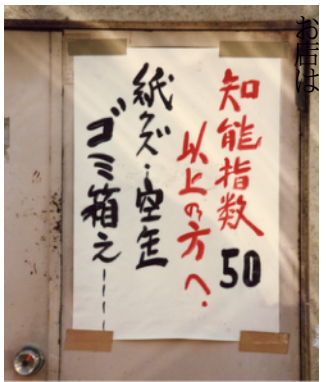 お店は
知能指数50
以上の方へ.
紙クズ・空缶
ゴミ箱え----